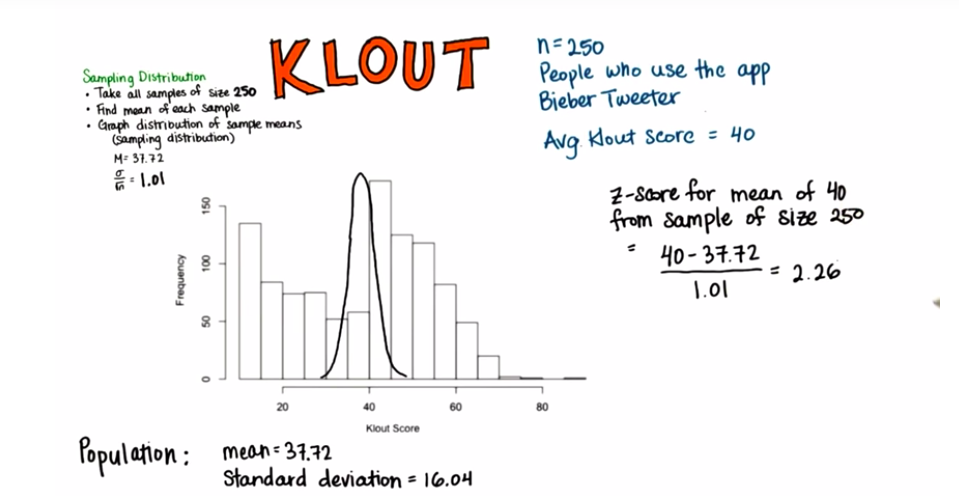 KLOUT
Sampling Distribution
• Take all samples of size 250
• Find mean of each sample
• Graph distribution of sample means
(sampling distribution)
M = 37.72
σ/√n = 1.01
n = 250
People who use the app
Bieber Tweeter
Avg. Klout Score = 40
z-score for mean of 40
from sample of size 250
= 40 - 37.72 / 1.01 = 2.26
Frequency
150
100
50
0
20 40 60 80
Klout Score
Population: mean = 37.72
Standard deviation = 16.04